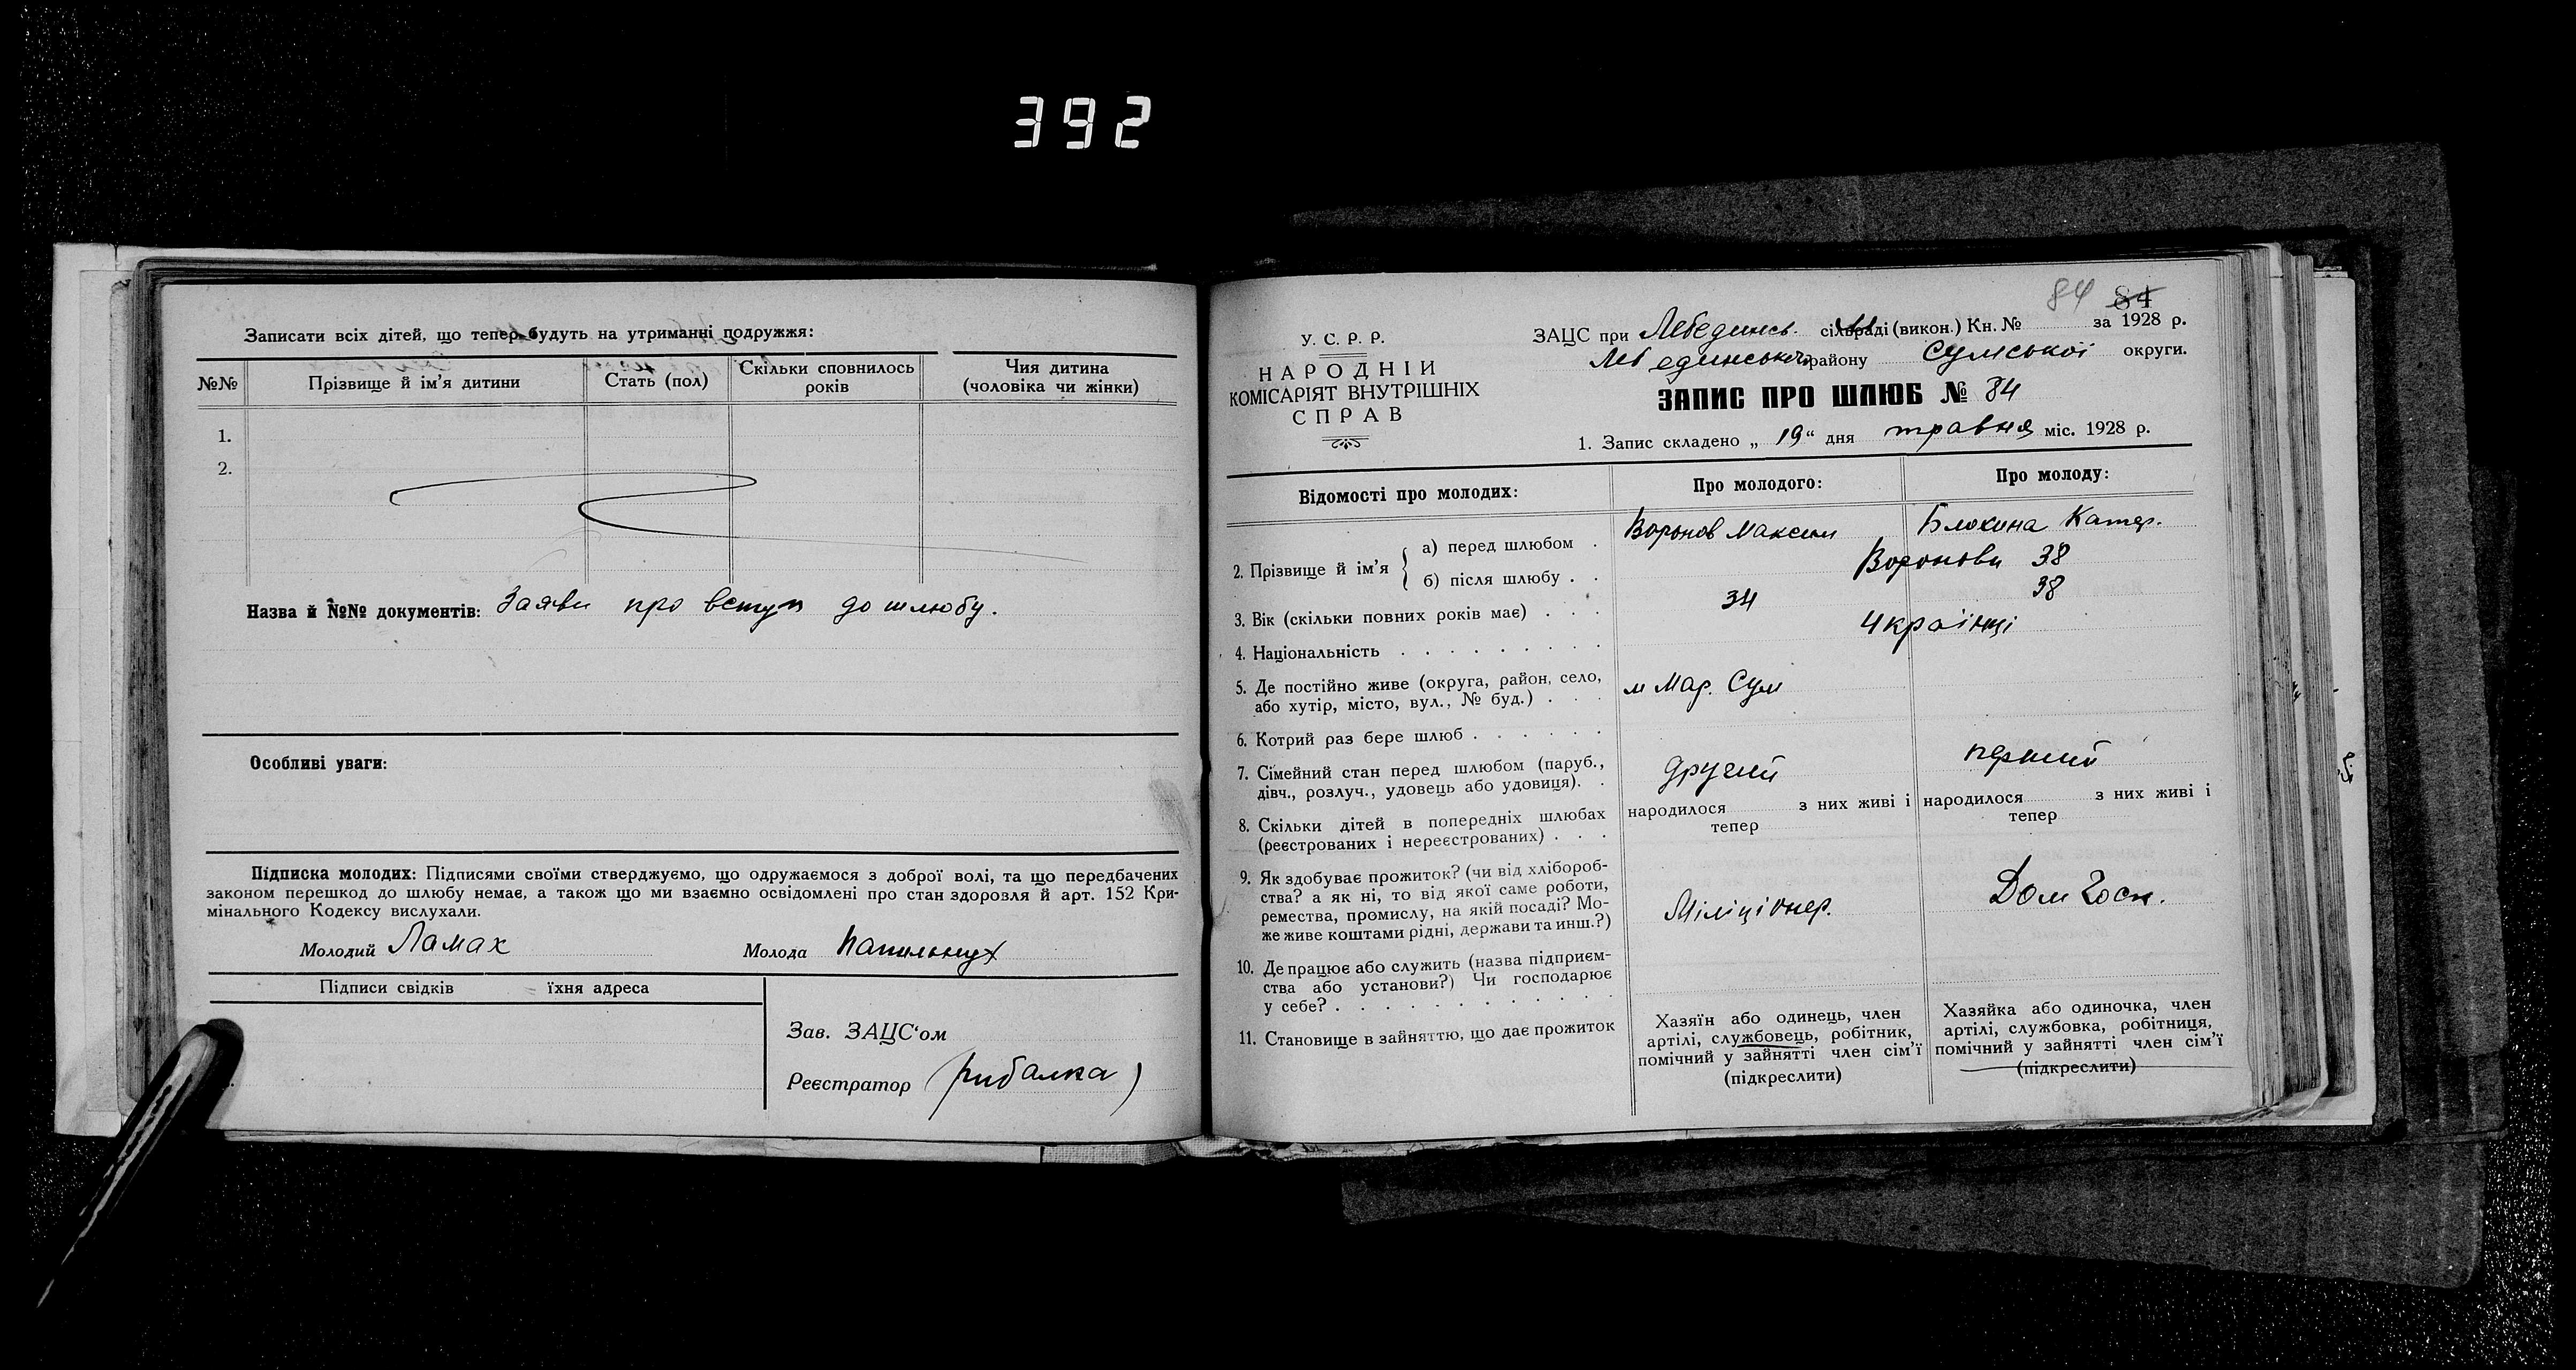 392
Записати всіх дітей, що тепер будуть на утриманні подружжя:
№№ Прізвище й ім'я дитини Стать (пол) Скільки сповнилось років Чия дитина (чоловіка чи жінки)
1.
2.
Назва й №№ документів: Заяви про вступ до шлюбу.
Особливі уваги:
Підписка молодих: Підписями своїми стверджуємо, що одружаємося з доброї волі, та що передбачених
законом перешкод до шлюбу немає, а також що ми взаємно освідомлені про стан здоровля й арт. 152 Кри-
мінального Кодексу вислухали.
Молодий Ламах Молода
Підписи свідків їхня адреса
Зав. ЗАЦС'ом
Реєстратор (Рибалка)
84 84
У. С. Р. Р.
НАРОДНІЙ
КОМІСАРІЯТ ВНУТРІШНІХ
СПРАВ
ЗАЦС при Лебединсь. сільраді (викон.) Кн. № за 1928 р.
Лебединського району Сумської округи.
ЗАПИС ПРО ШЛЮБ № 84
1. Запис складено „ 19 “ дня травня міс. 1928 р.
Відомості про молодих: Про молодого: Про молоду:
2. Прізвище й ім'я
а) перед шлюбом . Воронов Максим Блохина Катер.
б) після шлюбу . . Воронови 38
3. Вік (скільки повних років має) . . . 34 38
4. Національність . . . . . . . . . Українці
5. Де постійно живе (округа, район, село,
або хутір, місто, вул., № буд.) . . . м Мар. Сум
6. Котрий раз бере шлюб . . . . . .
7. Сімейний стан перед шлюбом (паруб.,
дівч., розлуч., удовець або удовиця). . другий перший
8. Скільки дітей в попередніх шлюбах
(реєстрованих і нереєстрованих) . . .
народилося з них живі і
тепер
народилося з них живі і
тепер
9. Як здобуває прожиток? (чи від хлібороб-
ства? а як ні, то від якої саме роботи,
ремества, промислу, на якій посаді? Мо-
же живе коштами рідні, держави та инш.?)
Міліціонер. Дом Госп.
10. Де працює або служить (назва підприєм-
ства або установи?) Чи господарює
у себе? . . . . . . . . . . . .
11. Становище в зайняттю, що дає прожиток
Хазяїн або одинець, член
артілі, службовець, робітник,
помічний у зайнятті член сім'ї
(підкреслити)
Хазяйка або одиночка, член
артілі, службовка, робітниця,
помічний у зайнятті член сім'ї
(підкреслити)